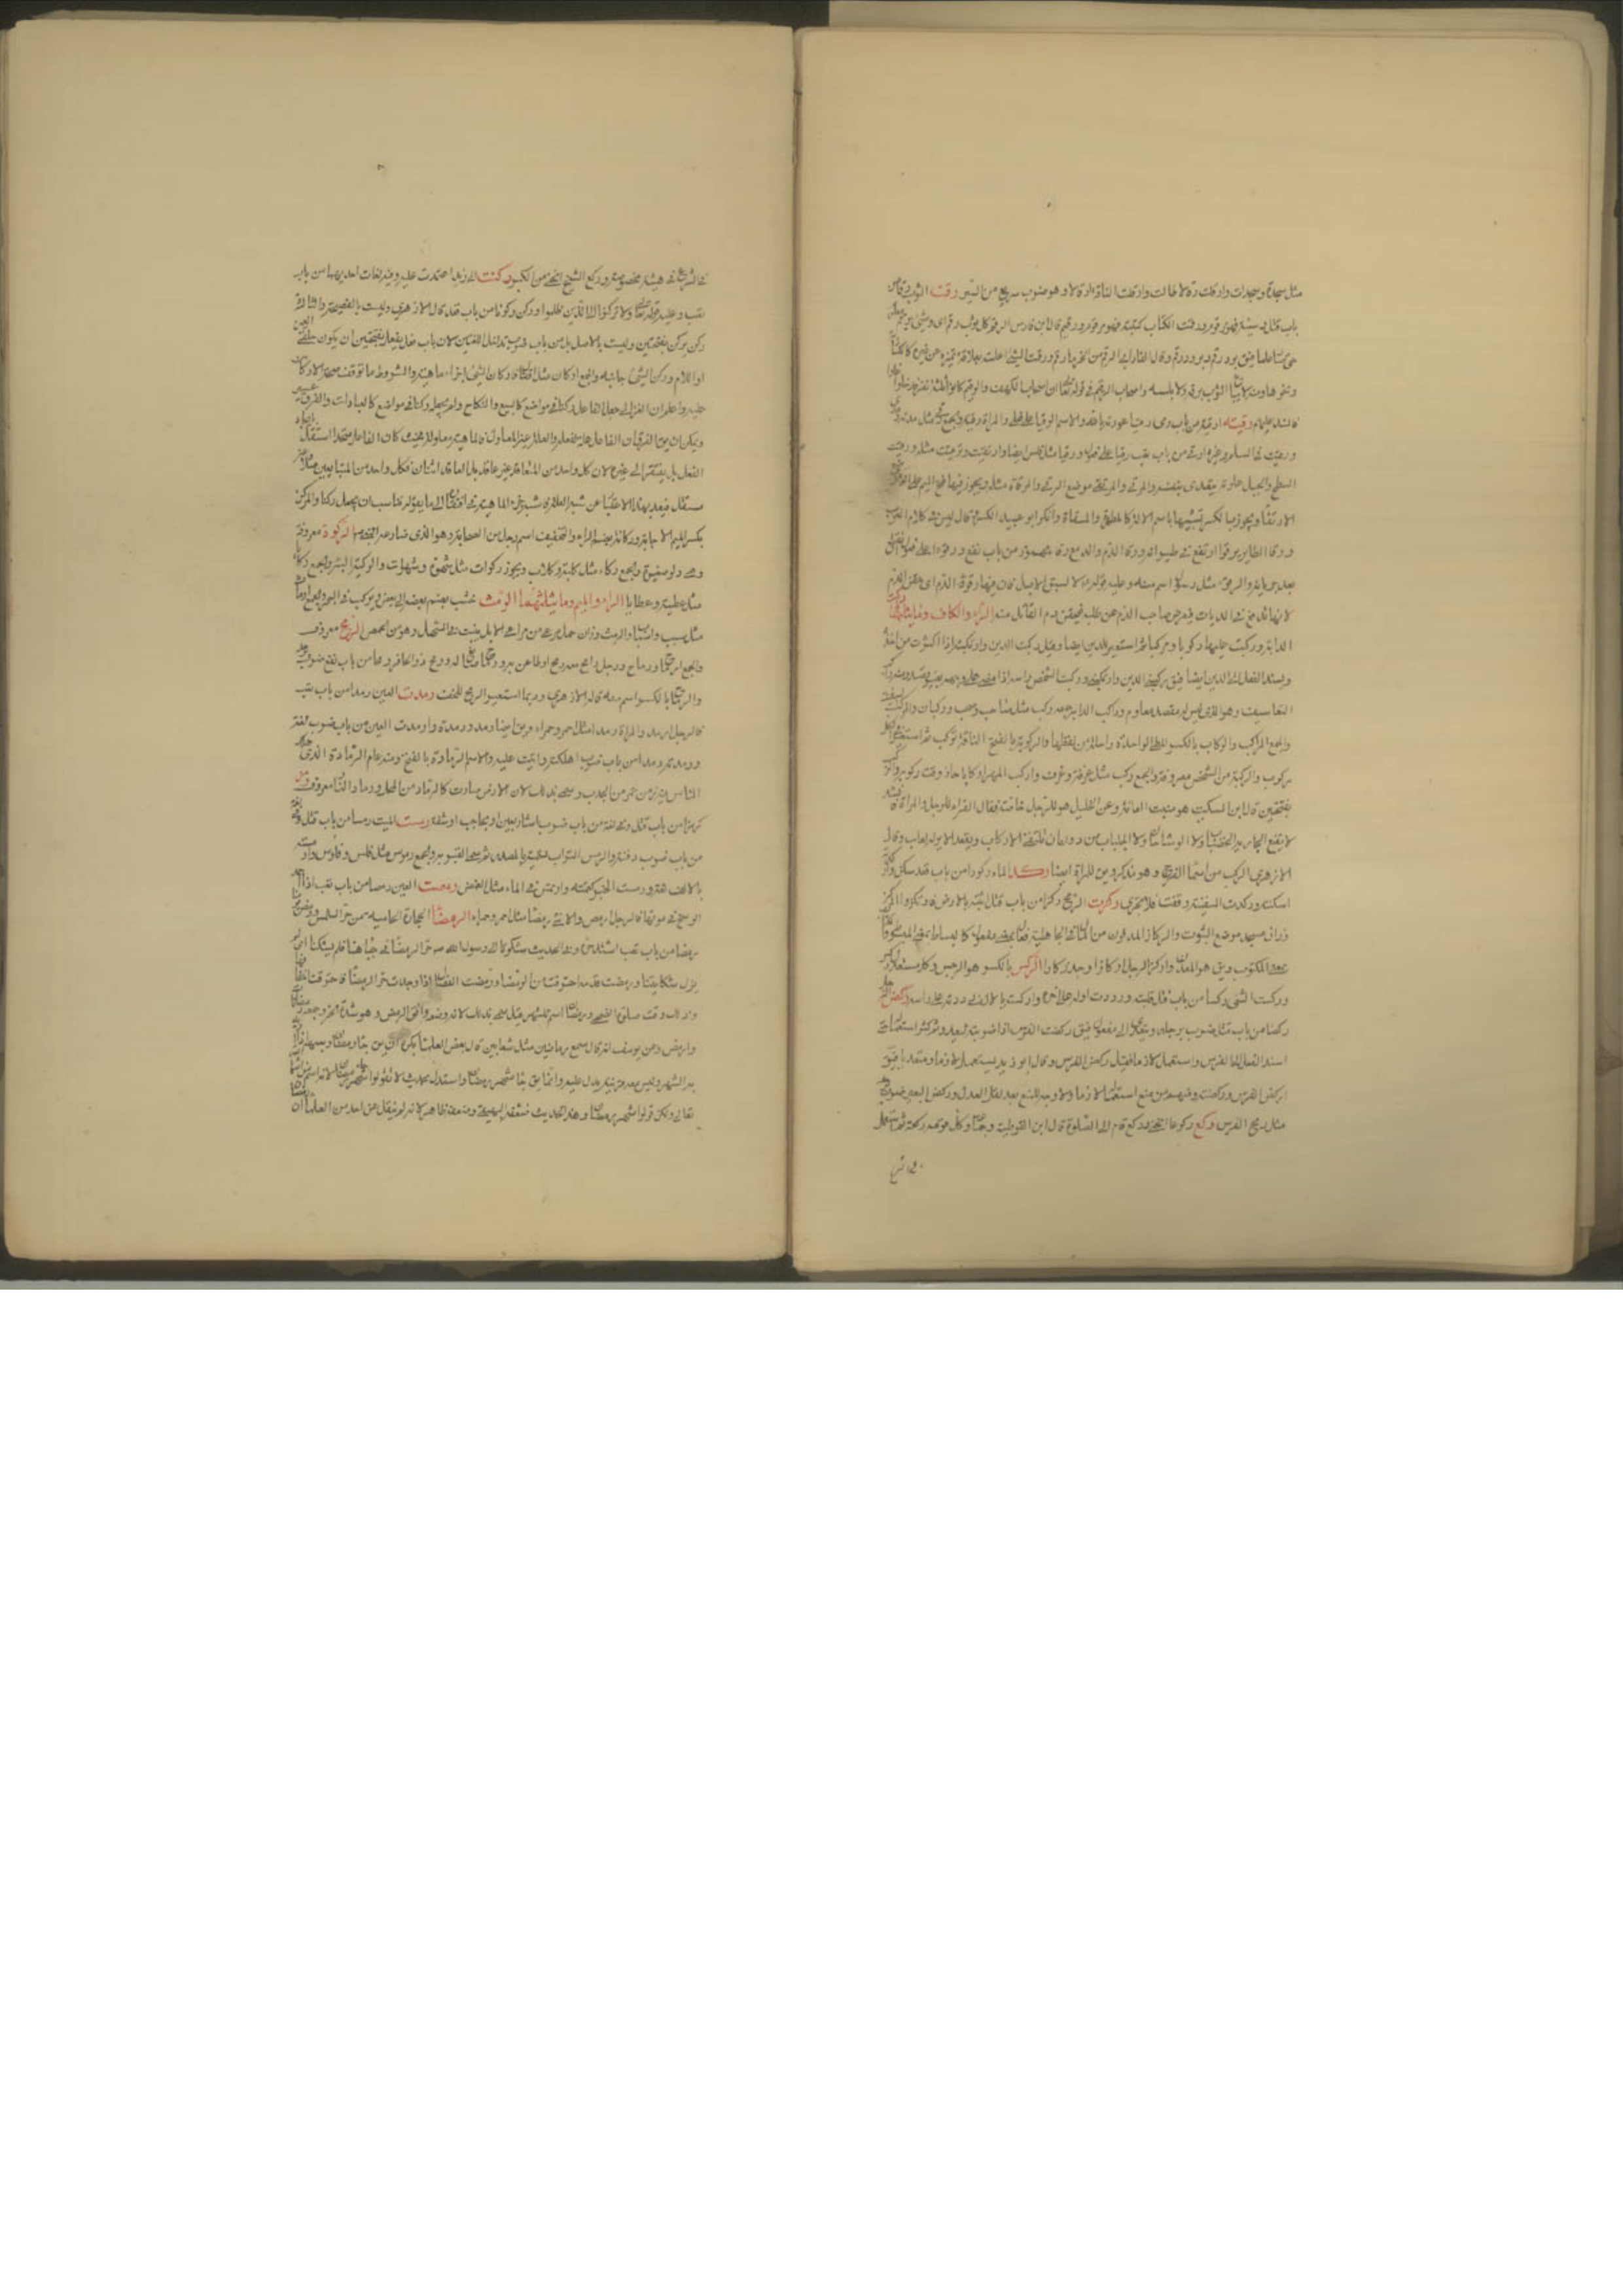 مثل سجدة وسجدات وارقلت رقلة طالت وارقلت الناقة ارقالا وهو ضرب سريع من السير رقمت الثوب رقما من
باب قتل وشيته فهو مرقوم ورقمت الكتاب كتبته فهو مرقوم ورقيم قال ابن فارس الرقم كل ثوب رقم اى وشى برقم معلوم
حتى صار علما فيق برد رقم وبرود رقم وقال الفارابى الرقم من الخز ما رقم ورقمت الشئ اعلمته بعلامة تميزه عن غيره كالكتابة
ونحوها ومنه لا يباع الثوب برقمه ولا بلمسه واصحاب الرقيم فى قوله تعالى ان اصحاب الكهف والرقيم كانوا
رقيته ارقيه من باب رمى رقيا عوذته بالله والاسم الرقيا على فعلى والمرة رقية والجمع رقى مثل مدية ومدى
ورقيت فى السلم وغيره ارقى من باب تعب رقيا على فعول ورقيا مثل فلس ايضا وارتقيت وترقيت مثله ورقيت
السطح والجبل علوته يتعدى بنفسه والمرقى والمرتقى موضع الرقى والمرقاة مثله ويجوز فيها فتح الميم على انه موضع
الارتقاء ويجوز بالكسر تشبيها باسم الالة كالمطهرة والمسقاة وانكر ابو عبيد الكسر وقال ليس فى كلام العرب
ورقا الطاير يرقوا ارتفع فى طيرانه ورقا الدم والدمع رقا مهموز من باب نفع ورقوءا على فعول انقطع
بعد جريانه والرقوء مثل رسول اسم منه وعليه قوله لا تسبوا الابل فان فيها رقوء الدم اى حقن الدم
لانها تدفع فى الديات فيعرض صاحب الثار عن طلبه فيحقن دم القاتل منه الراء والكاف وما يثلثهما
الدابة وركبت عليها ركوبا ومركبا ثم استعير للدين فقيل ركبت الدين وارتكبته اذا اكثرت من اخذه
ويسند الفعل الى الدين ايضا فيق ركبنى الدين وارتكبنى وركب الشخص راسه اذا مضى على وجهه بغير قصد ومنه راكب
التعاسيف وهو الذى ليس له مقصد معلوم وراكب الدابة جمعه ركب مثل صاحب وصحب وركبان والمركب السفينة
والجمع المراكب والركاب بالكسر المطى الواحدة راحلة من غير لفظها والركوبة بالفتح الناقة تركب ثم استعير فى كل
مركوب والركبة من الشخص معروفة والجمع ركب مثل غرفة وغرف واركب المهر اركابا حان وقت ركوبه والركب
بفتحتين قال ابن السكيت هو منبت العانة وعن الخليل هو للرجل خاصة وقال الفراء للرجل والمراة وانشد
لا يقنع الجارية الخضاب ولا الوشاحان ولا الجلباب من دون ان تلتقى الاركاب ويقعد الاير له لعاب وقال
الازهرى الركب من اسماء الفرج وهو مذكر ويق للمراة ايضا ركد الماء ركودا من باب قعد سكن واركدته
اسكنته وركدت السفينة وقفت فلا تجرى ركزت الرمح ركزا من باب قتل اثبته بالارض فارتكز والمركز
وزان مسجد موضع الثبوت والركاز المدفون من المال فى الجاهلية فعال بمعنى مفعول كالبساط بمعنى المبسوط
بمعنى المكتوب ويق هو المعدن واركز الرجل اركازا وجد ركازا الركس بالكسر هو الرجس وكل مستقذر ركس
وركست الشئ ركسا من باب قتل قلبته ورددت اوله على اخره واركسته بالالف رددته على راسه ركض الرجل
ركضا من باب قتل ضرب برجله ويتعدى الى مفعول فيق ركضت الفرس اذا ضربته ليعدو ثم كثر استعماله حتى
اسند الفعل الى الفرس واستعمل لازما فقيل ركض الفرس وقال ابو زيد يستعمل لازما ومتعديا فيق
ركض الفرس وركضته ومنهم من منع استعماله لازما ولا وجه للمنع بعد نقل العدل وركض البعير ضرب برجله
مثل رمح الفرس ركع ركوعا انحنى وركع قام الى الصلوة قال ابن القوطية وجماعة وكل قومة ركعة ثم استعمل
فى الشرع فى هيئة مخصوصة وركع الشيخ انحنى من الكبر ركنت الى زيد اعتمدت عليه وفيه لغات احديها من باب
تعب وعليه قوله تعالى ولا تركنوا الى الذين ظلموا وركن ركونا من باب قعد قال الازهرى وليست بالفصيحة والثالثة
ركن يركن بفتحتين وليست بالاصل بل من باب تداخل اللغتين لان باب فعل يفعل بفتحتين ان يكون حلقى العين
او اللام وركن الشئ جانبه والجمع اركان مثل قفل واقفال فاركان الشئ اجزاء ماهيته والشروط ما توقف صحة الاركان
عليها واعلم ان الغزالى جعل الفاعل ركنا فى مواضع كالبيع والنكاح ولم يجعله ركنا فى مواضع كالعبادات والفرق عسير
ويمكن ان يق الفرق ان الفاعل علة لفعله والعلة غير المعلول فالماهية معلولة فحيث كان الفاعل متحدا استقل بايجاد
الفعل بل يفتقر الى غيره لان كل واحد من المتعاقدين غير عاقد بل العاقد اثنان فكل واحد من المتبايعين مثلا غير
مستقل فبعد بهذا الاعتبار عن شبه العلة واشبه جزء الماهية فى افتقاره الى ما يقومه فناسب ان يجعل ركنا والمركن
بكسر الميم الاجانة وركانة بضم الراء والتخفيف اسم رجل من الصحابة وهو الذى صارعه الركوة معروفة
وهى دلو صغيرة والجمع ركاء مثل كلبة وكلاب ويجوز ركوات مثل شهوة وشهوات والركية البئر والجمع ركايا
مثل عطية وعطايا الراء والميم وما يثلثهما الرمث خشب يضم بعضه الى بعض ويركب فى البحر والجمع ارماث
مثل سبب واسباب والرمث وزان حمل مرعى من مراعى الابل ينبت فى السهل وهو من الحمض الرمح معروف
والجمع ارماح ورماح ورجل رامح معه رمح او طاعن به ورماح صانع له ورمح ذو الحافر رمحا من باب نفع ضرب برجله
والرماح بالكسر اسم منه قاله الازهرى وربما استعير الرمح للخف رمدت العين رمدا من باب تعب
فالرجل ارمد والمراة رمداء مثل احمر وحمراء ويق ايضا رمد ورمدة وارمدت العين من باب ضرب لغة
ورمده رمدا من باب ضرب اهلكه واتيت عليه والاسم الرمادة بالفتح ومنه عام الرمادة الذى هلك
الناس فيه زمن عمر من الجدب وسمى بذلك لان الارض صارت كالرماد من المحل ورماد النار معروف رمز
رمزا من باب قتل وفى لغة من باب ضرب اشار بعين او بحاجب او شفة رمست الميت رمسا من باب قتل وفى لغة
من باب ضرب دفنته والرمس التراب تسمية بالمصدر ثم سمى القبر به والجمع رموس مثل فلس وفلوس وارمسته
بالالف لغة ورمست الخبر كتمته وارتمس فى الماء مثل انغمس رمصت العين رمصا من باب تعب اذا جمد
الوسخ فى موقها فالرجل ارمص والانثى رمصا مثل احمر وحمراء الرمضاء الحجارة الحامية من حر الشمس ورمض يومنا
رمضا من باب تعب اشتد حره وفى الحديث شكونا الى رسول الله ص حر الرمضاء فى جباهنا فلم يشكنا اى لم
يزل شكايتنا ورمضت قدمه احترقت من الرمضاء ورمضت الفصال اذا وجدت حر الرمضاء فاحترقت اخفافها
وذلك وقت صلوة الضحى ورمضان اسم للشهر قيل سمى بذلك لان وضعه وافق الرمض وهو شدة الحر وجمعه رمضانات
وارمضا وعن يونس انه سمع رماضين مثل شعابين قال بعض العلماء يكره ان يق جاء رمضان وشبهه اذا اريد
به الشهر وليس معه قرينة تدل عليه وانما يق جاء شهر رمضان واستدل بحديث لا تقولوا رمضان فان رمضان اسم من اسماء
تعالى ولكن قولوا شهر رمضان وهذا الحديث ضعفه البيهقى وضعفه ظاهر لانه لم ينقل عن احد من العلماء ان